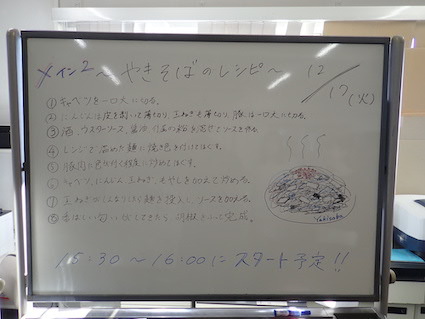 メイン2 ～やきそばのレシピ～ 12/17(火)
① キャベツを一口大に切る。
② にんじんは皮を剥いて薄切り、玉ねぎも薄切り、豚は一口大に切る。
③ 酒、ウスターソース、醤油、の粉を混ぜてソースを作る。
④ レンジで温めた麺に焼き色を付けてほぐす。
⑤ 豚肉に色が付く程度に炒めてほぐす。
⑥ キャベツ、にんじん、玉ねぎ、もやしを加えて炒める。
⑦ 玉ねぎがしんなりしたら麺を投入し、ソースを加える。
⑧ 香ばしい匂いがしてきたら、胡椒をふって完成。
Yakisoba
15:30～16:00にスタート予定!!